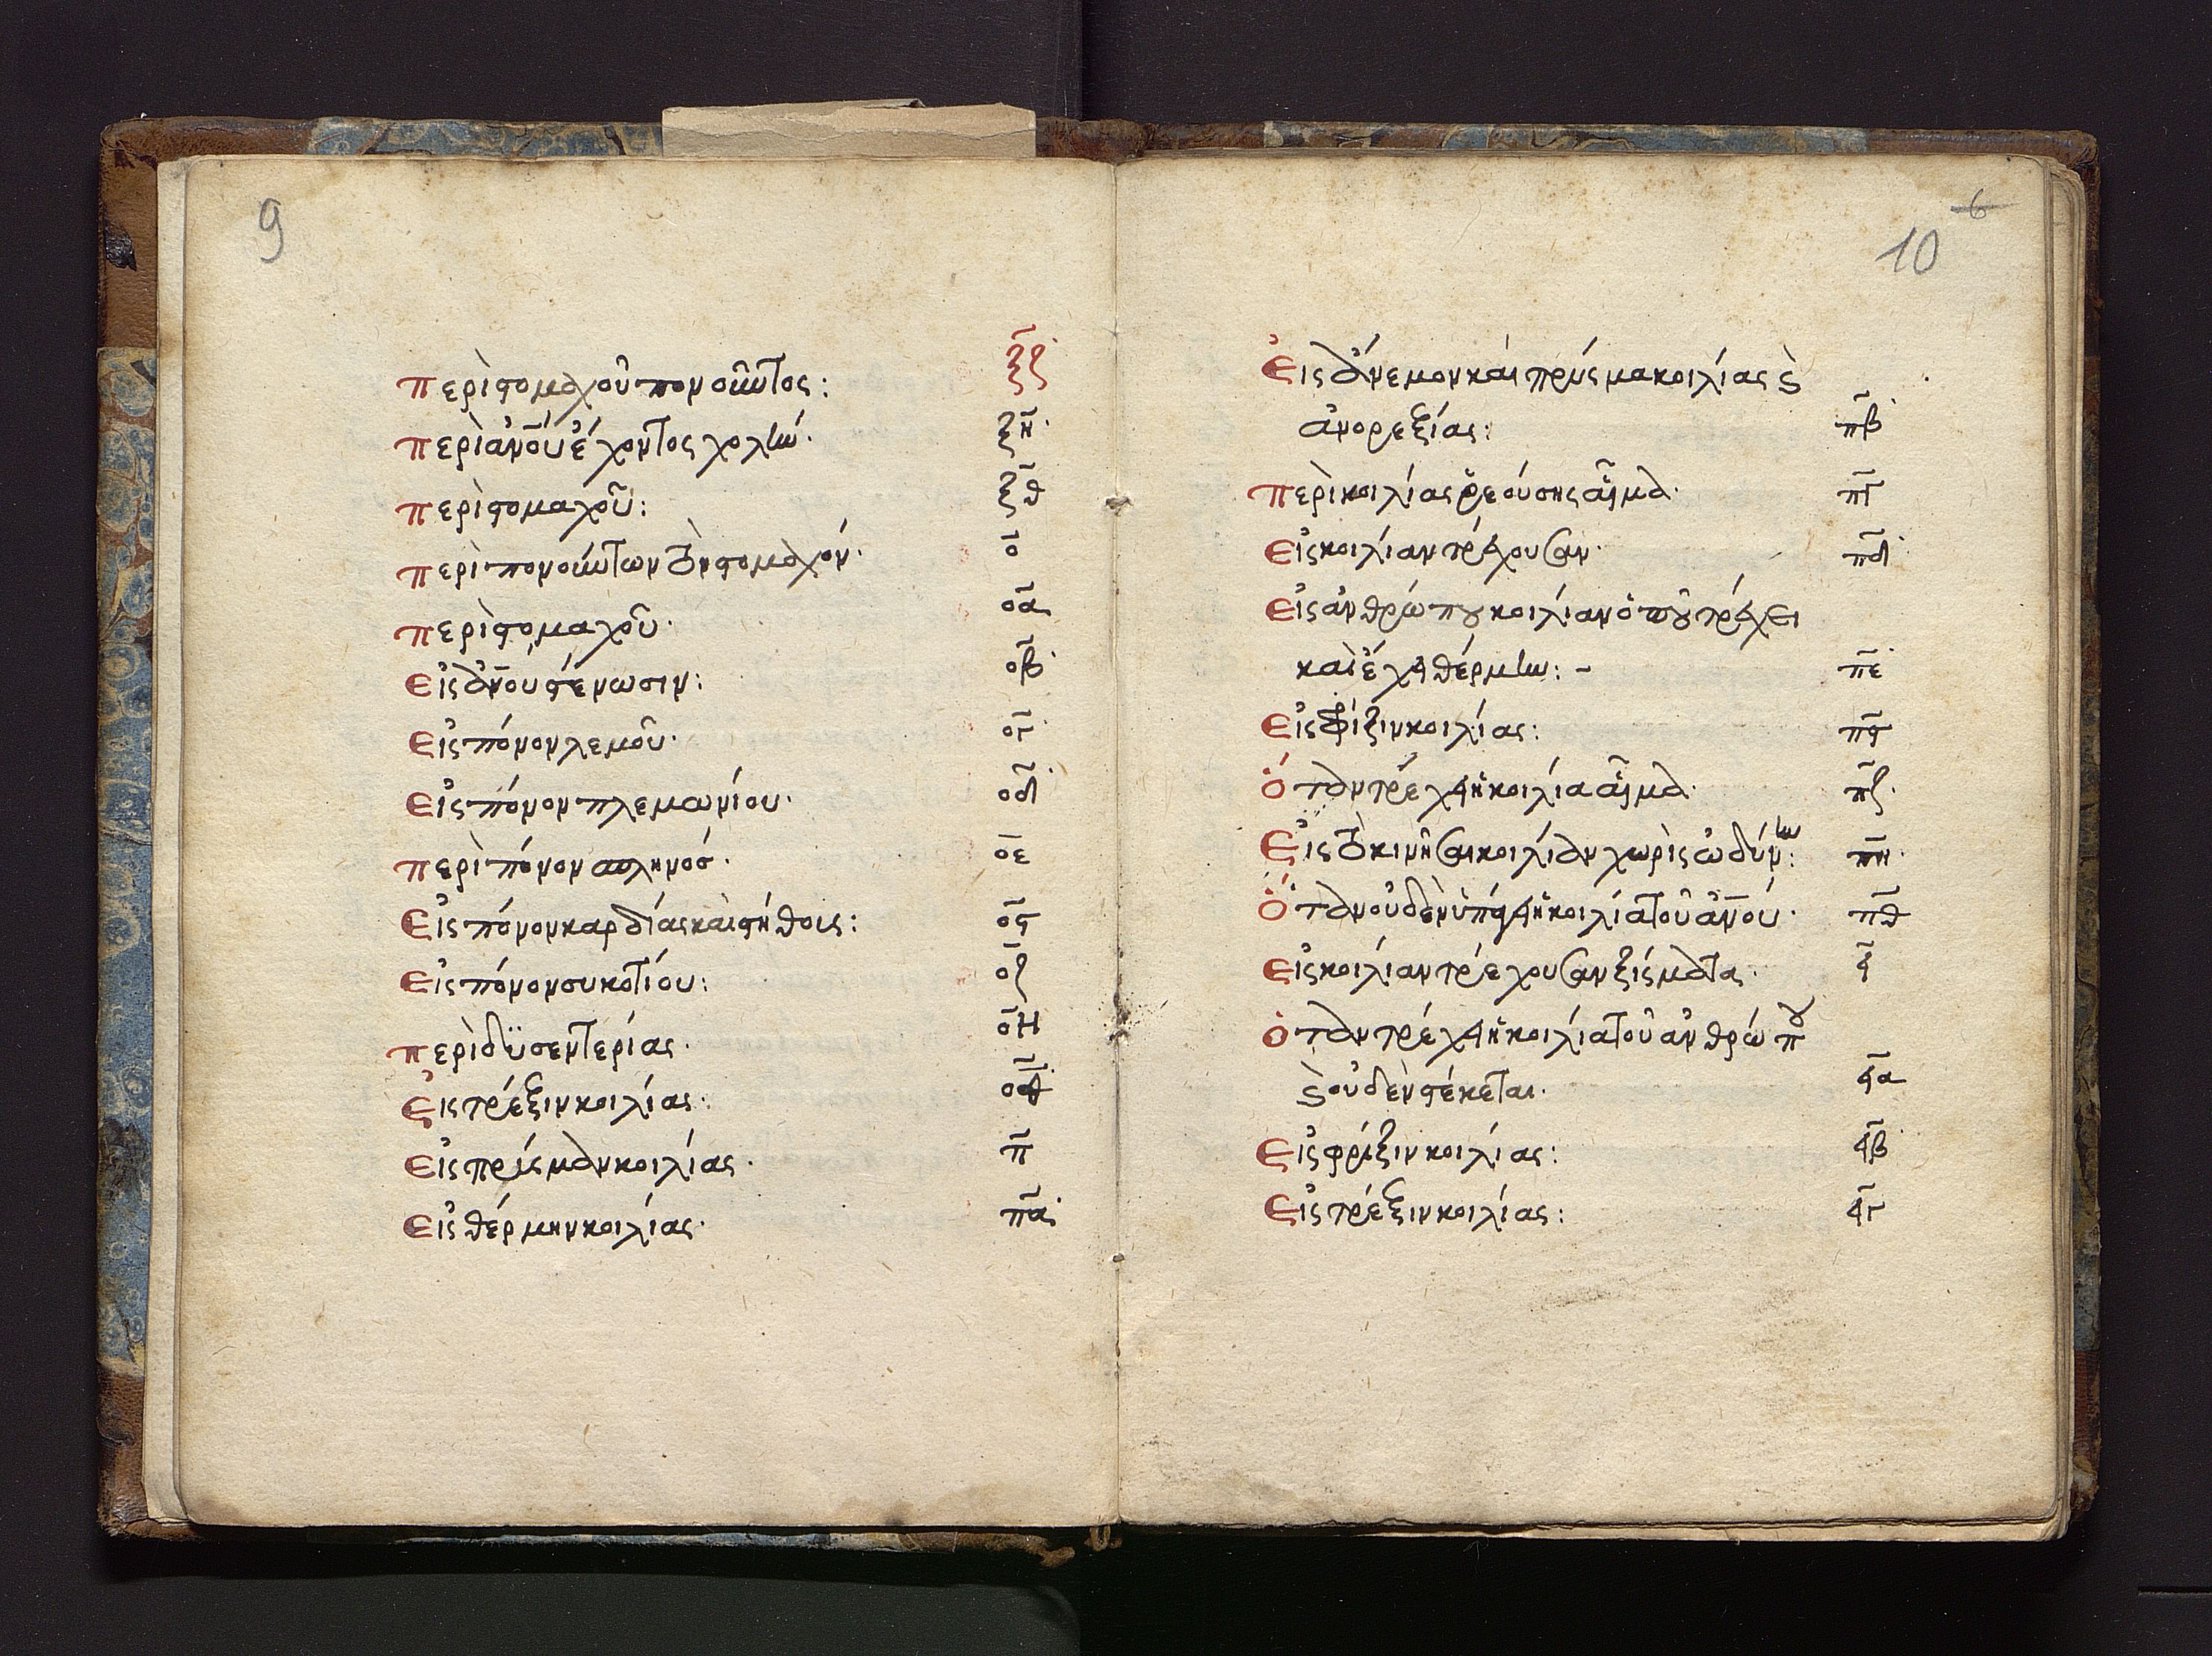 9
περὶ στομαχοῦ πονοῦντος: ξζ
περὶ ἀνοῦ ἔχοντος χολήν· ξη
περὶ στομαχοῦ: ξθ
περὶ πονούντων τὸν στομαχόν· ο
περὶ στομαχοῦ· οα
Εἰς ἀνοῦ στένωσιν: οβ
Εἰς πόνον λεμοῦ· ογ
Εἰς πόνον πλεμωνίου· οδ
περὶ πόνον σπληνός· οε
Εἰς πόνον καρδίας καὶ στήθοις: ος
Εἰς πόνον συκοτίου: οζ
περὶ δϋσεντερίας· οη
Εἰς τρέξιν κοιλίας: οθ
Εἰς πρίσμαν κοιλίας· π
Εἰς θέρμην κοιλίας· πα
6
10
Εἰς ἄνεμον καὶ πρίσμα κοιλίας ϗ
ἀνορεξίας: πβ
περὶ κοιλίας ῥεούσης αἷμα· πγ
Εἰς κοιλίαν τρέχουσαν· πδ
Εἰς ἀνθρώπου κοιλίαν ὁποῦ τρέχει
καὶ ἔχει θέρμην: - πε
Εἰς φρίξιν κοιλίας: πς
ὅταν τρέχει ἡ κοιλία αἷμα· πζ
Εἰς τὸ κινῆσαι κοιλίαν χωρὶς ὠδύνην: πη
Ὅταν οὐδὲν ὑπάγει ἡ κοιλία τοῦ ἀνοῦ· πθ
Εἰς κοιλίαν τρέχουσαν ξίσματα· ϟ
ὅταν τρέχει ἡ κοιλία τοῦ ἀνθρώπου
ϗ οὐδὲν στέκεται· ϟα
Εἰς φρίξιν κοιλίας: ϟβ
Εἰς τρέξιν κοιλίας: ϟγ